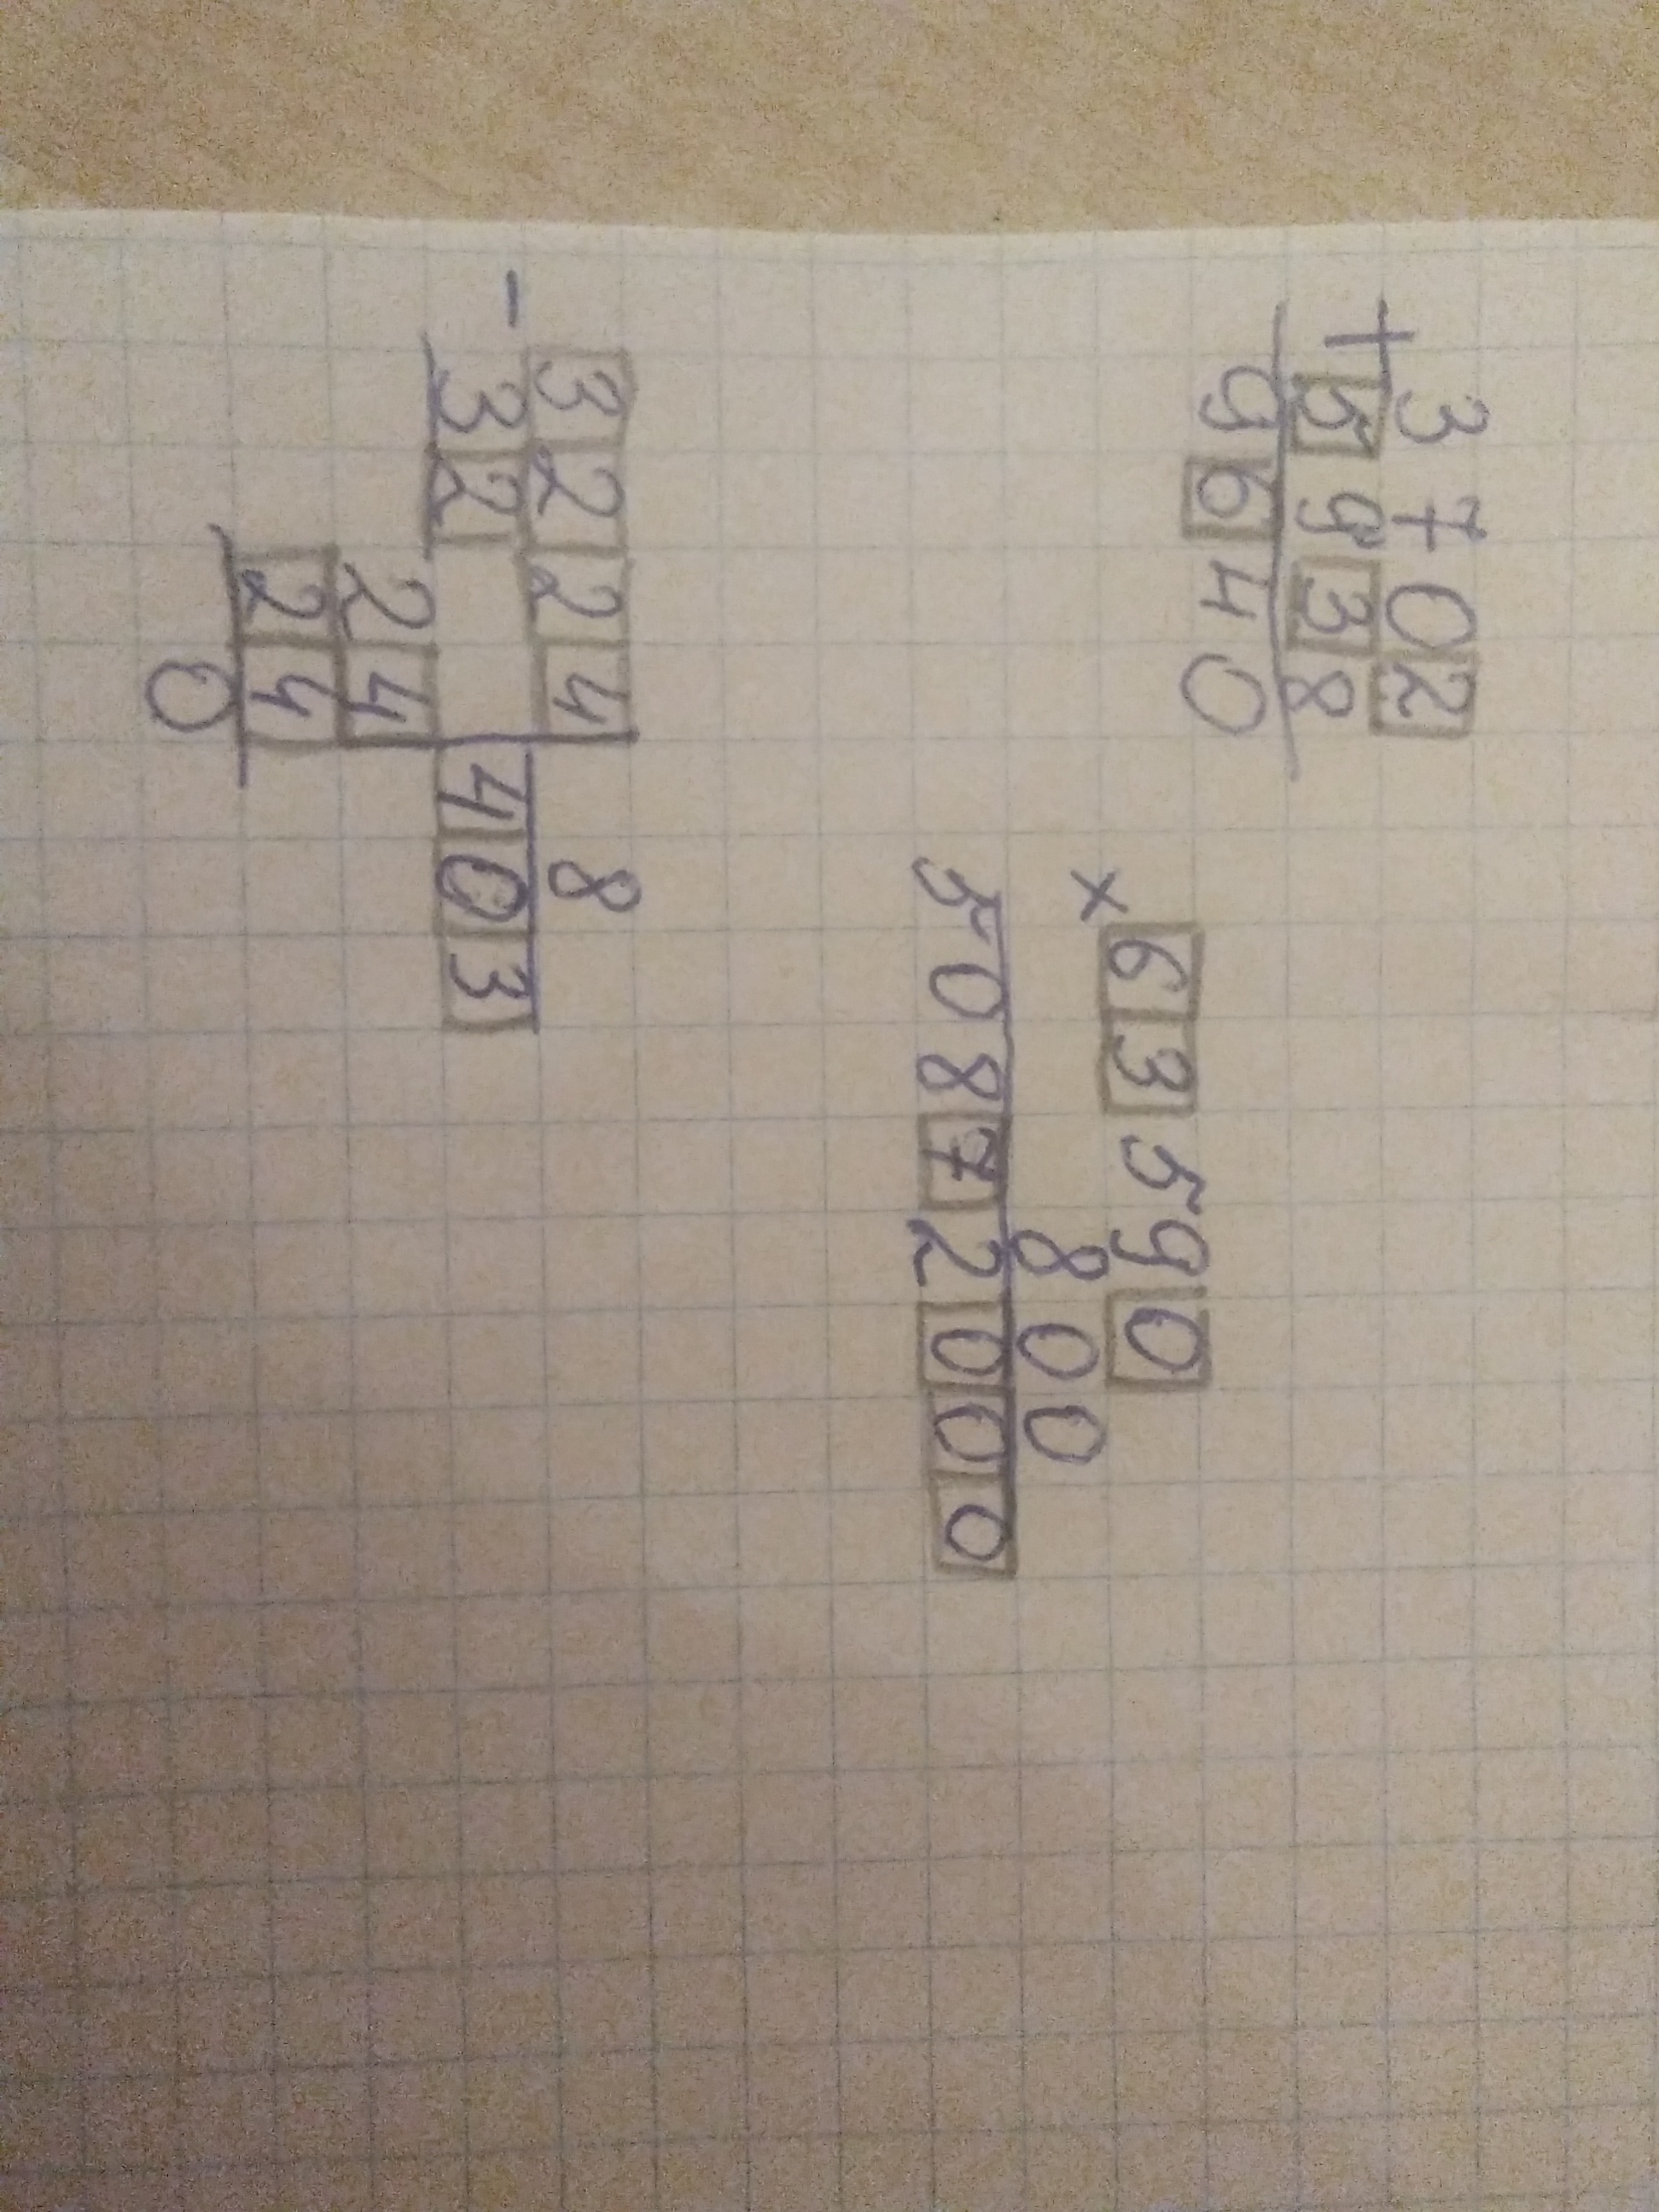 + 3702
5938
9640
× 63590
800
50872000
- 3224 | 8
32 | 403
24
24
0